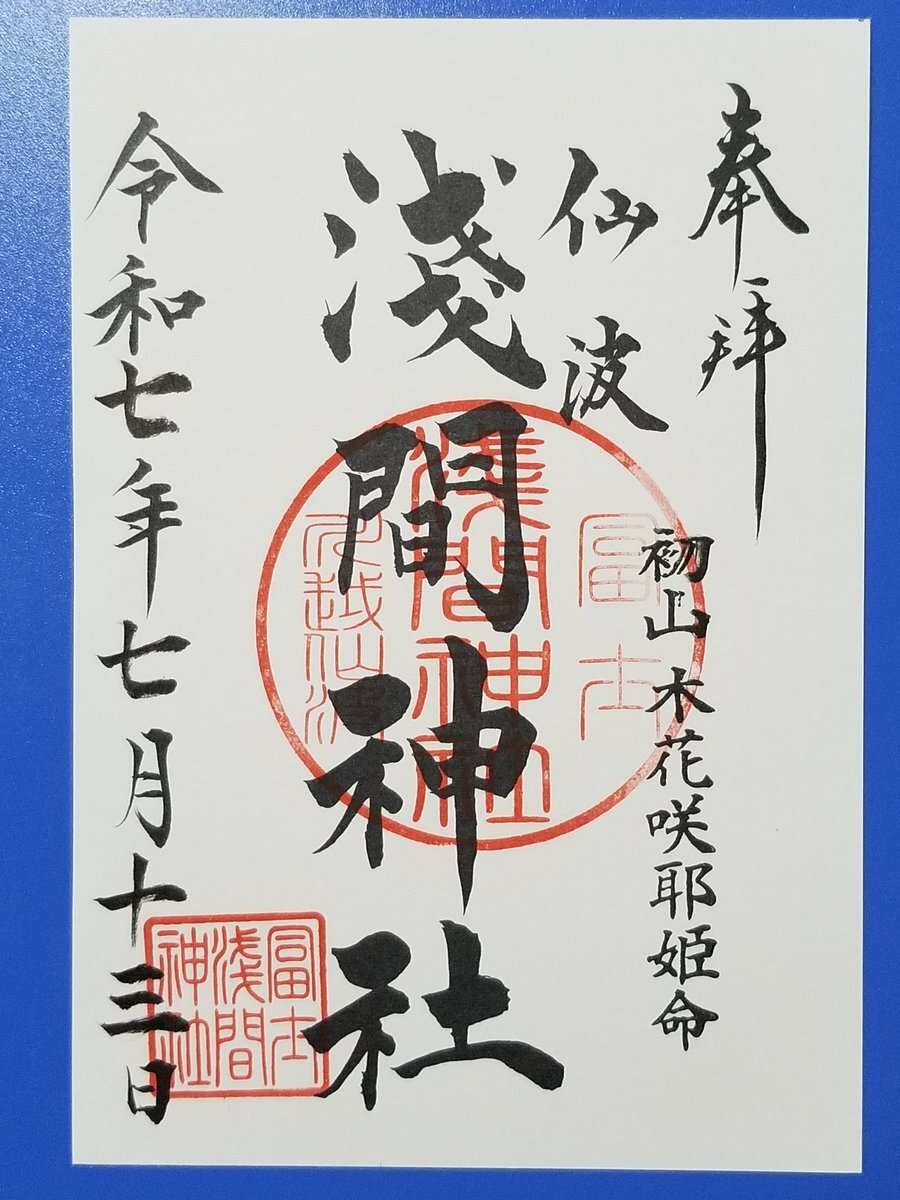 奉拝
初山 木花咲耶姫命
仙波
淺間神社
冨士
淺間神社
川越仙波
令和七年七月十三日
冨士
淺間
神社